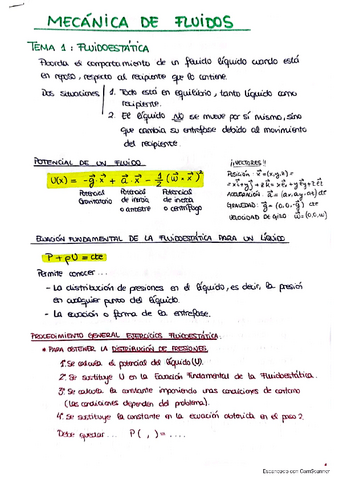 MECÁNICA DE FLUIDOS
TEMA 1: FLUIDOESTÁTICA
Aborda el comportamiento de un fluido líquido cuando está
en reposo, respecto al recipiente que lo contiene.
Dos situaciones 1. Todo está en equilibrio, tanto líquido como
recipiente.
2. El líquido NO se mueve por sí mismo, sino
que cambia su entrefase debido al movimiento
del recipiente.
POTENCIAL DE UN FLUIDO
¡¡VECTORES!!
U(x) = -g · x + a · x - 1/2 (ω × x)²
POSICIÓN: x = (x,y,z) =
Potencial Gravitatorio
Potencial de inercia o arrastre
Potencial de inercia o centrífugo
ACELERACIÓN: a = (ax, ay, az) cte
GRAVEDAD: g = (0,0,-g) cte
VELOCIDAD DE GIRO ω = (0,0,ω)
ECUACIÓN FUNDAMENTAL DE LA FLUIDOESTÁTICA PARA UN LÍQUIDO
P + ρU = cte
Permite conocer ...
- La distribución de presiones en el líquido, es decir, la presión
en cualquier punto del líquido.
- La ecuación o forma de la entrefase.
PROCEDIMIENTO GENERAL EJERCICIOS FLUIDOESTÁTICA:
* PARA OBTENER LA DISTRIBUCIÓN DE PRESIONES
1º Se calcula el potencial del líquido (U).
2º Se sustituye U en la Ecuación Fundamental de la Fluidoestática.
3º Se calcula la constante imponiendo unas condiciones de contorno
(las condiciones dependen del problema).
4º Se sustituye la constante en la ecuación obtenida en el paso 2.
Debe quedar ... P( , ) = ....
Escaneado con CamScanner